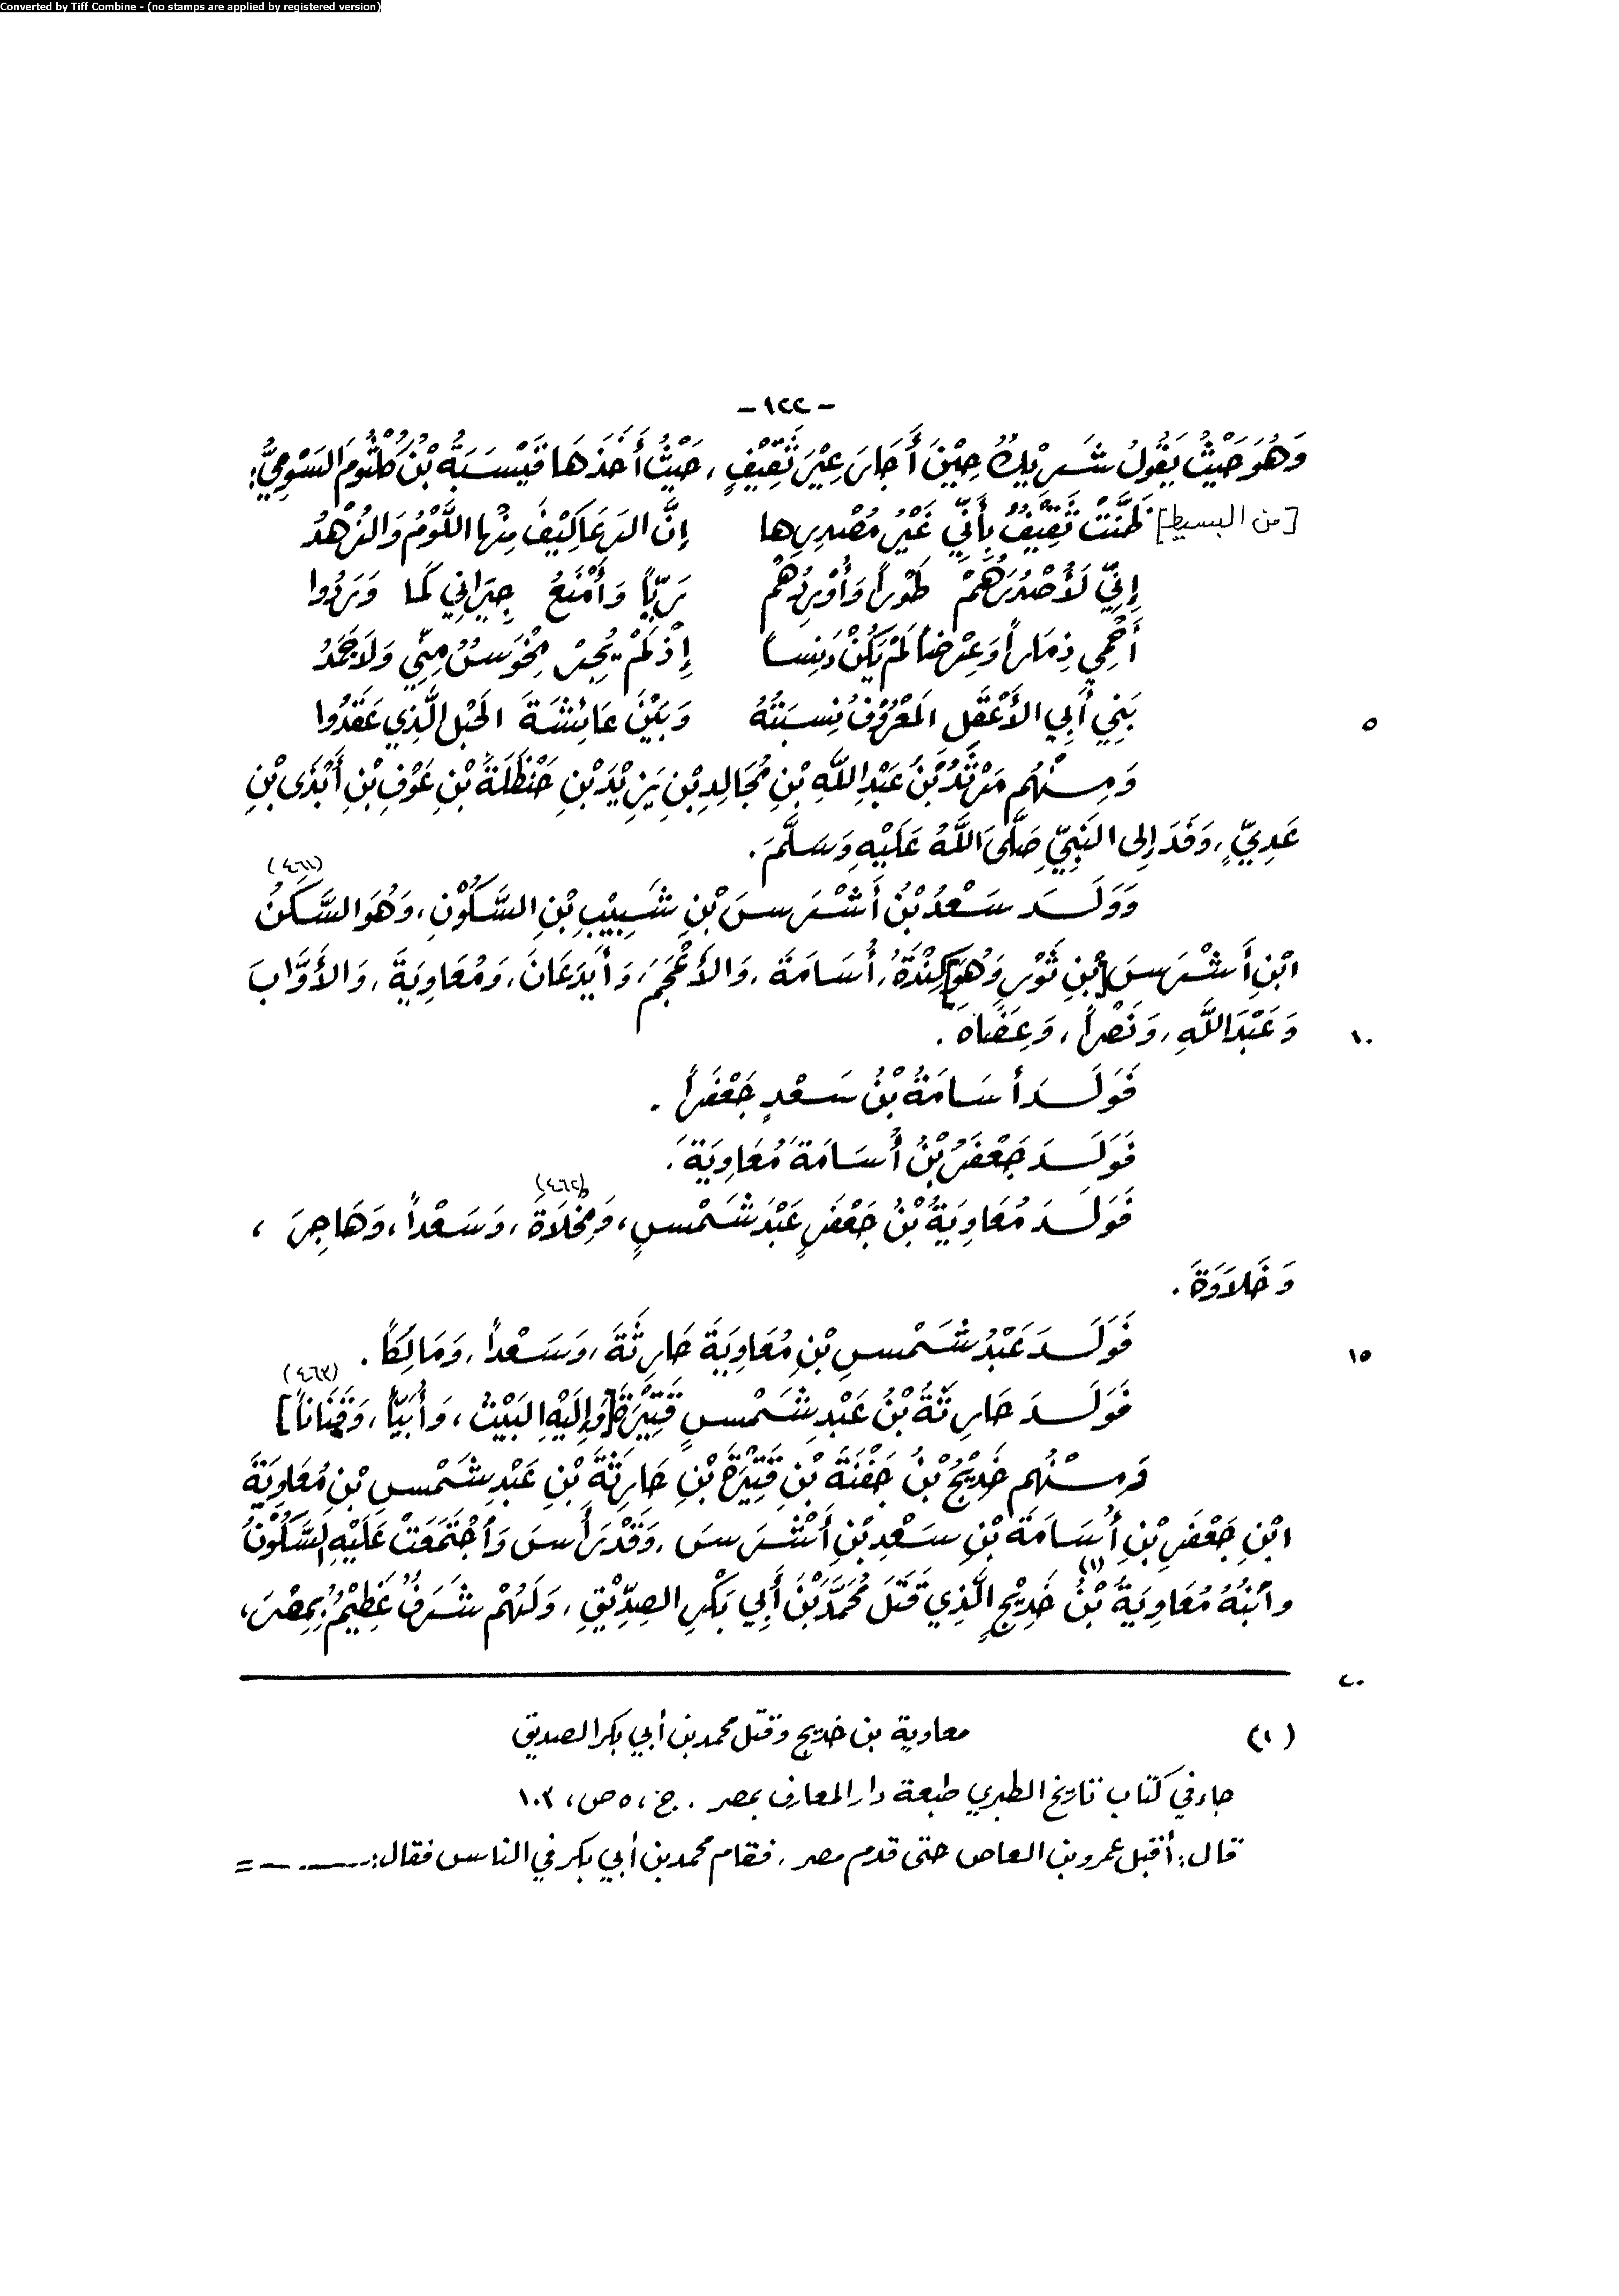 Converted by Tiff Combine - (no stamps are applied by registered version)
- ١٢٢ -
وَهُوَ حَيْثُ يَقُولُ شَرِيْكُ حِيْنَ أَجَارَ عِيْرَ ثَقِيْفٍ، حَيْثُ أَخَذَهَا قَيْسَبَةُ بْنُ كُلْثُومَ السَّوْمِيُّ:
[من البسيط] ظَنَّتْ ثَقِيْفٌ بِأَنِّي غَيْرُ مُصْدِرِها إِنَّ الرِّعَا كِيْفَ مِنْها اللَّوْمُ وَالزُّهْدُ
إِنِّي لَأُصْدُرُهُمْ طَوْراً وَأُوْرِدُهُمْ رَيّاً وَأَمْنَعُ جِيَرانِي كَما وَرَدُوا
أَحْمِي ذِمَاراً وَعِرْضاً لَمْ يَكُنْ دَنِساً إِذْ لَمْ يُجِرْ مِخْوَسٌ مِنِّي وَلَا جَمَدُ
بَنِي أَبِي الأَعْقَلِ المَعْرُوْفُ نِسبَتُهُ وَبَيْنَ عَائِشَةَ الحَبْلِ الَّذِي عَقَدُوا
٥
وَمِنْهُم مَرْثَدُ بْنُ عَبْدِ اللَّهِ بْنِ مُجَالِدِ بْنِ يَزِيْدَ بْنِ حَنْظَلَةَ بْنِ عَوْفِ بْنِ أَبْذَى بْنِ
عَدِيٍّ، وَفَدَ إِلى النَّبِيِّ صَلَّى اللَّهُ عَلَيْهِ وَسَلَّمَ.
(٤٦١)
وَوَلَدَ سَعْدُ بْنُ أَشْرَسَ بْنِ شَبِيْبِ بْنِ السَّكُوْنِ، وَهُوَ السَّكَنُ
ابْنِ أَشْرَسَ [بْنِ ثَوْرٍ وَهُوَ] كِنْدَةُ، أُسَامَةَ، وَالأَعْجَمَ، وَأَيدَعَانَ، وَمُعَاوِيَةَ، وَالأَوَّابَ
وَعَبْدَ اللَّهِ، وَنَصْراً، وَعِضَاه.
١٠
فَوَلَدَ أسَامَةُ بْنُ سَعْدٍ جَعْفَراً.
فَوَلَدَ جَعْفَرُ بْنُ أُسَامَةَ مُعَاوِيَةَ.
(٤٦٢)
فَوَلَدَ مُعَاوِيَةُ بْنُ جَعْفَرٍ عَبْدَ شَمْسٍ، وَمِخْلَاةَ، وَسَعْداً، وَهَاجِرَ،
وَخَلَاوَةَ.
فَوَلَدَ عَبْدُ شَمْسِ بْنِ مُعَاوِيَةَ حَارِثَةَ، وَسَعْداً، وَمَالِكاً.
١٥
(٤٦٣)
فَوَلَدَ حَارِثَةُ بْنُ عَبْدِ شَمْسٍ قَتِيْرَةَ [وَإِلَيْهِ البَيْتُ، وَأُبَيّاً، وَقَنَاناً]
فَمِنْهُم خَدِيْجُ بْنُ جَفْنَةَ بْنِ قَتِيْرَةَ بْنِ حَارِثَةَ بْنِ عَبْدِ شَمْسِ بْنِ مُعَاوِيَةَ
ابْنِ جَعْفَرِ بْنِ أُسَامَةَ بْنِ سَعْدِ بْنِ أَشْرَسَ، وَقَدْ رَأَسَ وَاجْتَمَعَتْ عَلَيْهِ السَّكُوْنُ
وابْنُهُ مُعَاوِيَةُ بْنُ خَدِيْجٍ (١) الَّذِي قَتَلَ مُحَمَّدَ بْنَ أَبِي بَكْرٍ الصِدِّيْقِ، وَلَهُمْ شَرَفٌ عَظِيْمٌ بِمِصْرَ،
٢٠
(١) معاوية بن خديج وقتل محمد بن أبي بكر الصديق
جاء في كتاب تاريخ الطبري طبعة دار المعارف بمصر. ج، ٥ ص، ١٠٣
قال: أقبل عمرو بن العاص حتى قدم مصر، فقام محمد بن أبي بكر في الناس فقال: =